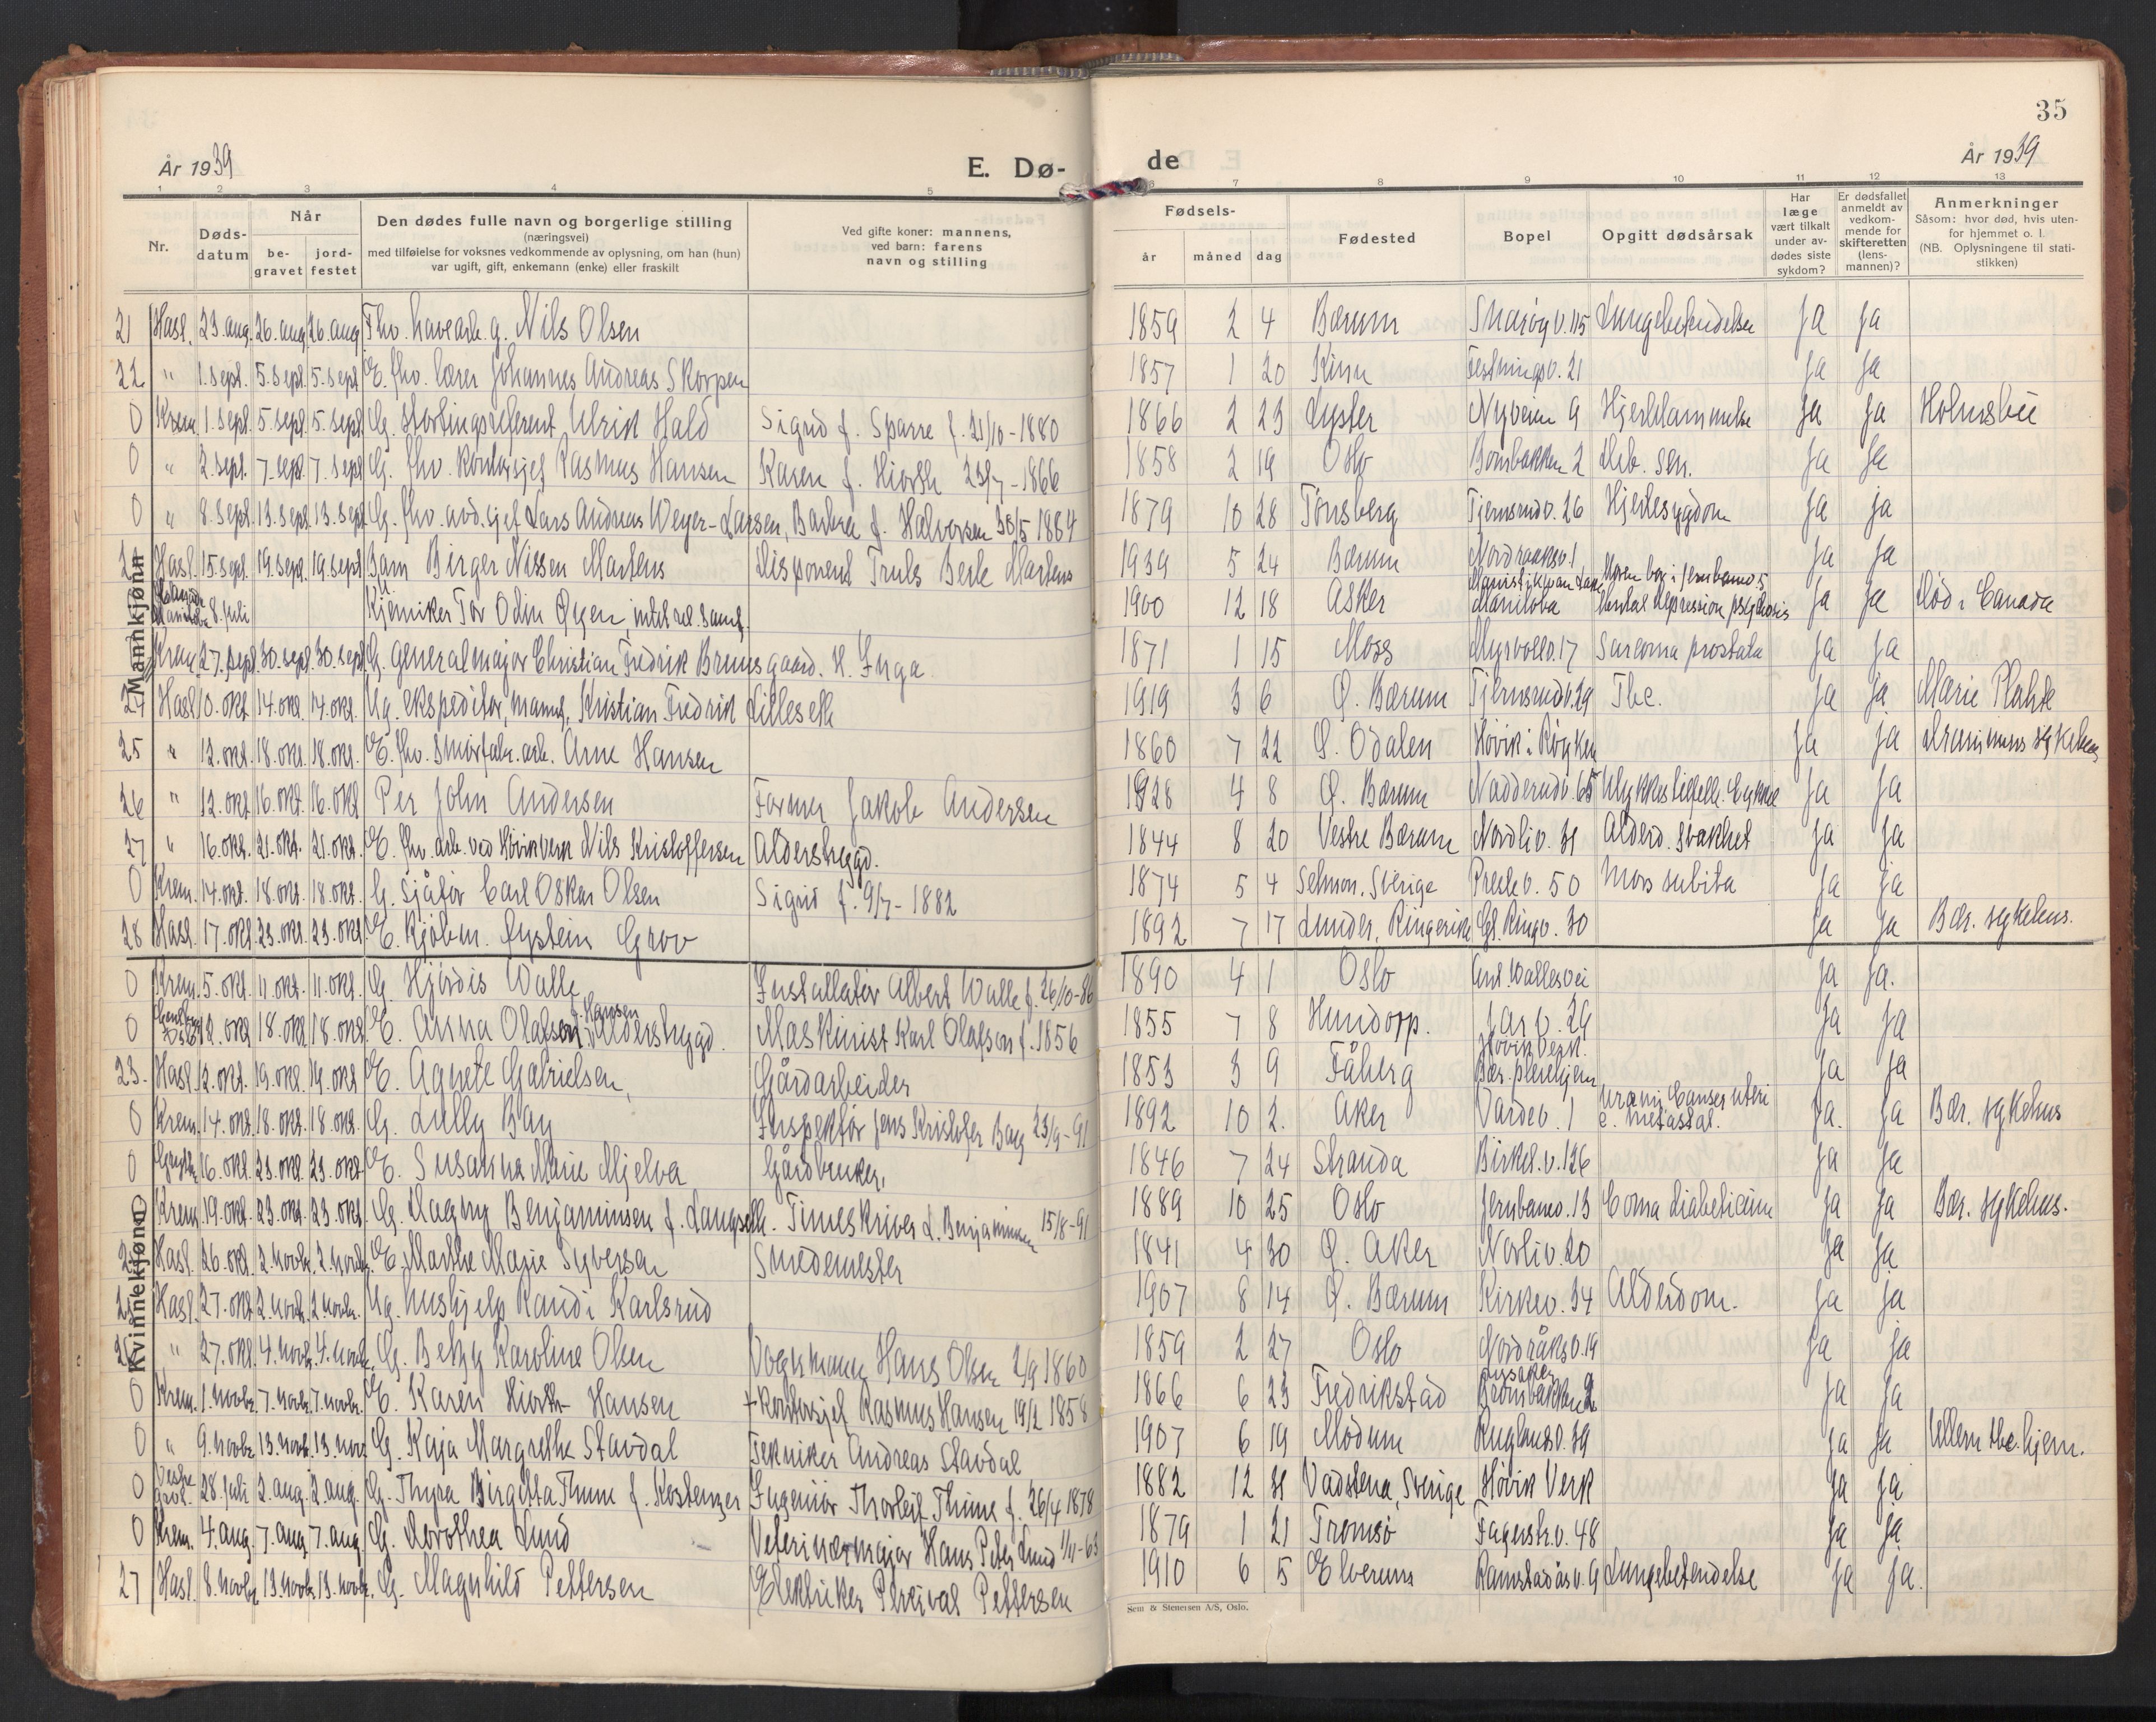 35
År 1939
E. Dø-
de
År 1939
1 2 3 4 5 6 7 8 9 10 11 12 13
Nr.
Døds-
datum
Når
be-
gravet
jord-
festet
Den dødes fulle navn og borgerlige stilling
(næringsvei)
med tilføielse for voksnes vedkommende av oplysning, om han (hun)
var ugift, gift, enkemann (enke) eller fraskilt
Ved gifte koner: mannens,
ved barn: farens
navn og stilling
Fødsels-
år måned dag
Fødested
Bopel
Opgitt dødsårsak
Har
læge
vært tilkalt
under av-
dødes siste
sykdom?
Er dødsfallet
anmeldt av
vedkom-
mende for
skifteretten
(lens-
mannen)?
Anmerkninger
Såsom: hvor død, hvis uten-
for hjemmet o. l.
(NB. Oplysningene til stati-
stikken)
Mannkjønn
21 Hasl. 23. aug. 26. aug. 26. aug. Fhv. havearb. g. Nils Olsen 1859 2 4 Bærum Snarøyv. 115 Lungebetendelse ja ja
22 " 1. sept. 5. sept. 5. sept. E. fhv. lærer Johannes Andreas Skorpen 1857 1 20 Kinn Festningsv. 21 ja ja
0 Krem. 1. sept. 5. sept. 5. sept. G. stortingsreferent Ulrik Hald Sigrid f. Sparre f. 21/10-1880 1866 2 23 Lyster Nyveien 9 Hjertelammelse ja ja Holmsbu
0 " 2. sept. 7. sept. 7. sept. G. fhv. kontorsjef Rasmus Hansen Karen f. Hiorth 23/7-1866 1858 2 19 Oslo 2 sen. ja ja
0 " 8. sept. 13. sept. 13. sept. G. fhv. avd. sjef Lars Andreas Weyer-Larsen, f. Halvorsen 30/5 1884 1879 10 28 Tønsberg Tjernsrudv. 26 Hjertesygdom ja ja
Hasl. 15. sept. 19. sept. 19. sept. Barn Birger Nissen Martens Disponent Truls Martens 1939 5 24 Bærum Nordraaksv. 1 ja ja
8. juli Kjemiker Tor Odin Øyen, 1900 12 18 Asker Manitoba Mental depression psychosis ja ja Død i Canada
Krem. 27. sept. 30. sept. 30. sept. G. generalmajor Christian Fredrik Brunsgaard. H. Inga. 1871 1 15 Moss Myrvollv. 17 Sarcoma prostata ja ja
24 Hasl. 10. okt. 14. okt. 14. okt. Ug. ekspeditør, Kristian Fredrik Lilleseth 1919 3 6 Ø. Bærum Tjernsrudv. 39 Tbc. ja ja Marie Plahte
25 " 12. okt. 18. okt. 18. okt. E. fhv. arb. Arne Hansen 1860 7 22 S. Odalen Høvik i Røyken ja ja Drammens sykehus
26 " 12. okt. 16. okt. 16. okt. Per John Andersen Former Jakob Andersen 1928 4 8 Ø. Bærum Nadderudv. 65 Ulykkestilfelle. ja ja
27 " 16. okt. 21. okt. 21. okt. E. fhv. arb. ved Høvik verk Nils Kristoffersen Alderstrygd. 1844 8 20 Vestre Bærum Nordliv. 31 Alderd. svakhet ja ja
0 Krem. 14. okt. 18. okt. 18. okt. G. sjåfør Carl Oskar Olsen Sigrid f. 9/7-1882 1874 5 4 Sverige Prestev. 50 Mors subita ja ja
28 Hasl. 17. okt. 23. okt. 23. okt. E. kjøbm. Eystein Grov 1892 7 17 Lunder, Ringerike Gl. Ringv. 30 ja ja Bær. sykehus.
Kvinnekjønn
0 Krem. 5. okt. 11. okt. 11. okt. G. Hjørdis Walle Installatør Albert Walle f. 26/10-86 1890 4 1 Oslo Ant. Wallesvei ja ja.
0 12. okt. 18. okt. 18. okt. E. Anna Olafsen f. Hansen Alderstrygd. Maskinist Karl Olafsen f. 1856 1855 7 8 Hundorp. Jarv. 29 ja ja
23. Hasl. 12. okt. 19. okt. 19. okt. E. Agnete Gabrielsen, Gårdarbeider 1853 3 9 Fåberg Høvik Verk. Bær. pleiehjem ja ja
0 Krem. 14. okt. 18. okt. 18. okt. G. Lully Bay Inspektør Jens Kristofer Bay 23/9-91 1892 10 2. Aker Vardev. 1 Uræmi Cancer uteri c. metastat. ja. ja Bær. sykehus
0 16. okt. 23. okt. 23. okt. E. Susanna Marie Mjelva Gårdbruker, 1846 7 24 Stranda Birkel. v. 126 ja ja
0 Krem. 19. okt. 23. okt. 23. okt. G. Dagny Benjaminsen f. Langseth. Timeskriver L. Benjaminsen 15/8-91 1889 10 25 Oslo Jernbanev. 13 Coma diabeticum ja ja Bær. sykehus.
Hasl. 26. okt. 2. novbr. 2. novbr. E. Marthe Marie Syversen Smedemester 1841 4 30 Ø. Aker Norliv. 20 ja ja
Hasl. 27. okt. 2. novbr. 2 novbr. Ug. hushjelp Randi Karlsrud 1907 8 14 Ø. Bærum Kirkev. 34 Alderdom. ja ja
" 27. okt. 4. novbr. 4. novbr. G. Betzy Karoline Olsen Vognmann Hans Olsen 2/9 1860 1859 2 27 Oslo Nordråksv. 19 ja ja
0 Krem. 1. novbr. 7. novbr. 7. novbr. E. Karen Hiorth Hansen + kontorsjef Rasmus Hansen 19/2 1858 1866 6 23 Fredrikstad Lysaker 2 ja ja
0 " 9. novbr. 13. novbr. 13. nov. G. Kaja Margrethe Stavdal Tekniker Andreas Stavdal 1907 6 19 Modum Ruglandsv. 39 ja ja Ullern tbc. hjem.
0 Vestre grav. 28. juli 2. aug. 2. aug. G. Thyra Birgitta Thime f. Ingeniør Thorleif Thime f. 26/4 1878 1882 12 31 Vadstena, Sverige Høvik Verk ja ja
0 Krem. 4. aug. 7. aug. 7. aug. G. Dorothea Lund Veterinærmajor Hans Peter Lund 1/11-63 1879 1 21 Tromsø Fagerstr. v. 48 ja ja
27 Hasl. 8. novbr. 13. novbr. 13. novbr. G. Magnhild Pettersen Elektriker Percival Pettersen 1910 6 5 Elverum Ramstadåsv. 9 Lungebetendelse ja ja.
Sem & Stenersen A/S, Oslo.